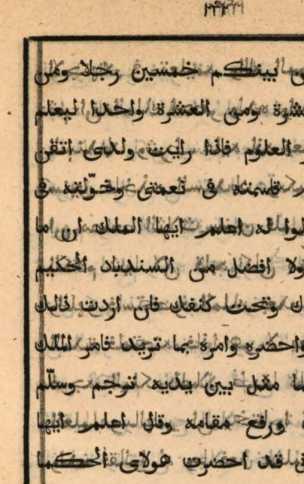 بينكم خمسين رجلا ومن
ومن العشرة واحدا ليعلم
العلوم فاذا رايت ولدى اتقن
قاسمته فى نعمتى وخوّلته فى
له اعلم ايها الملك ان ما
ولا افضل من السندباد الحكيم
وتحت كنفك فان اردت ذالك
احضره وامره بما تريد فامر الملك
مقبل بين يديه ترجم وسلّم
ورفع مقامه وقال اعلم ايها
قد احضرت هولاى الحكما